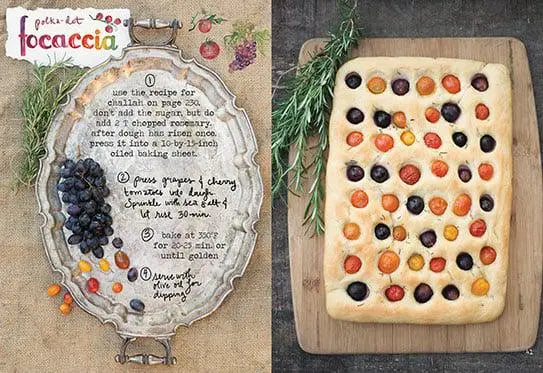 polka-dot
focaccia
①
use the recipe for
challah on page 230.
don't add the sugar, but do
add 2 T chopped rosemary.
after dough has risen once,
press it into a 10-by-15-inch
oiled baking sheet.
② press grapes & cherry
tomatoes into dough.
Sprinkle with sea salt &
let rise 30 min.
③ bake at 350°F
for 20-25 min. or
until golden
④ serve with
olive oil for
dipping